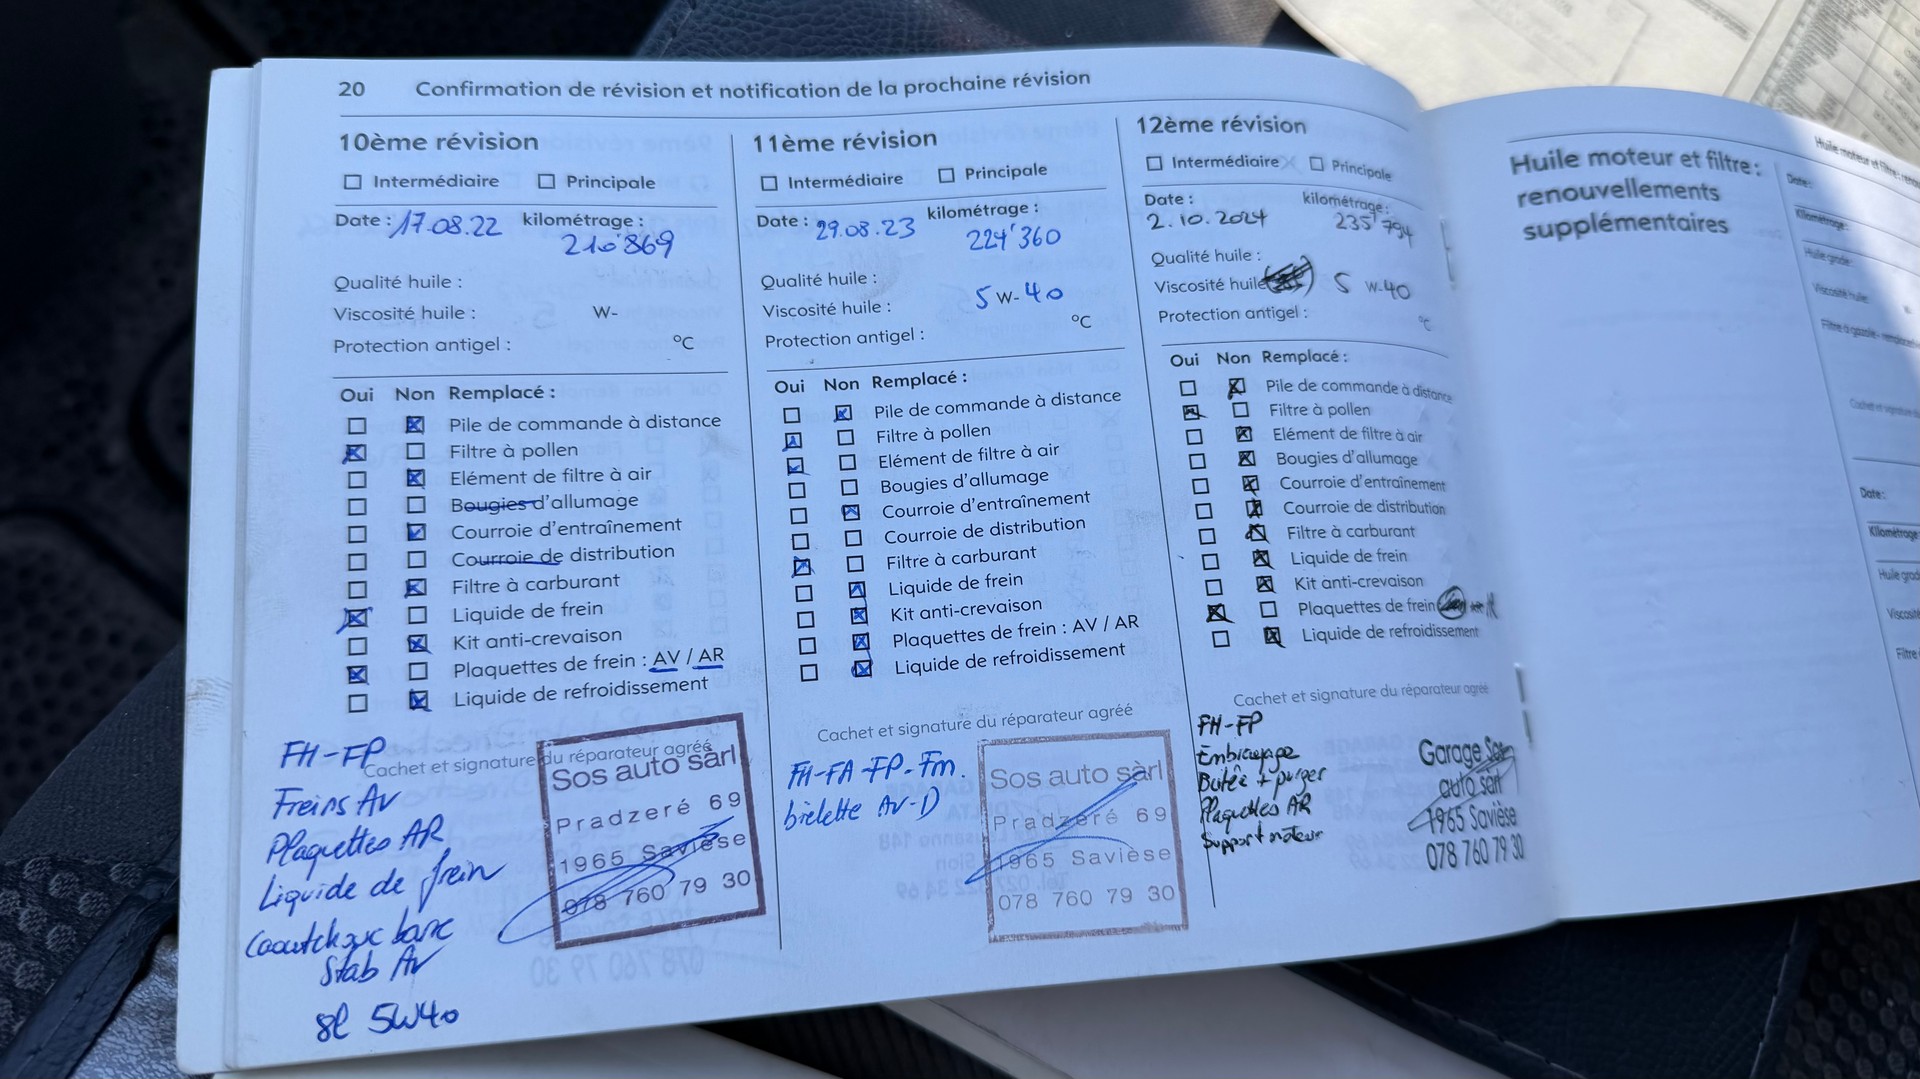 20 Confirmation de révision et notification de la prochaine révision
10ème révision
Intermédiaire Principale
Date : 17.08.22 kilométrage :
210'869
Qualité huile :
Viscosité huile : W-
Protection antigel : °C
Oui Non Remplacé :
Pile de commande à distance
Filtre à pollen
Elément de filtre à air
Bougies d'allumage
Courroie d'entraînement
Courroie de distribution
Filtre à carburant
Liquide de frein
Kit anti-crevaison
Plaquettes de frein : AV / AR
Liquide de refroidissement
Cachet et signature du réparateur agréé
FH-FP
Freins AV
Plaquettes AR
Liquide de frein
Caoutchouc barre
Stab AV
8l 5W40
Sos auto sàrl
Pradzeré 69
1965 Savièse
078 760 79 30
11ème révision
Intermédiaire Principale
Date : 29.08.23 kilométrage :
224'360
Qualité huile :
Viscosité huile : 5 W-40
Protection antigel : °C
Oui Non Remplacé :
Pile de commande à distance
Filtre à pollen
Elément de filtre à air
Bougies d'allumage
Courroie d'entraînement
Courroie de distribution
Filtre à carburant
Liquide de frein
Kit anti-crevaison
Plaquettes de frein : AV / AR
Liquide de refroidissement
Cachet et signature du réparateur agréé
FH-FA-FP-Fm.
bielette AV-D
Sos auto sàrl
Pradzeré 69
1965 Savièse
078 760 79 30
12ème révision
Intermédiaire Principale
Date : kilométrage :
2.10.2024 235'794
Qualité huile :
Viscosité huile 5 W-40
Protection antigel :
°C
Oui Non Remplacé :
Pile de commande à distance
Filtre à pollen
Elément de filtre à air
Bougies d'allumage
Courroie d'entraînement
Courroie de distribution
Filtre à carburant
Liquide de frein
Kit anti-crevaison
Plaquettes de frein
Liquide de refroidissement
Cachet et signature du réparateur agréé
FH-FP
Embrayage
Butée + purger
Plaquettes AR
Support moteur
Garage Sos
auto sàrl
1965 Savièse
078 760 79 30
Huile moteur et filtre :
renouvellements
supplémentaires
Huile moteur et filtre :
Date :
Kilométrage :
Huile grade :
Viscosité huile :
Filtre à gazole -
Date :
Kilométrage
Huile grad
Viscosité
Filtre